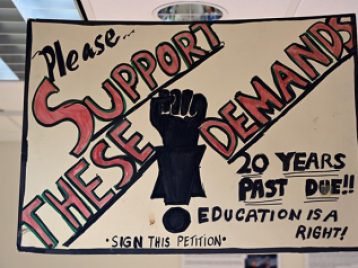 Please...
SUPPORT
THESE
DEMANDS
20 YEARS
PAST DUE!!
EDUCATION IS A
RIGHT!
• SIGN THIS PETITION •